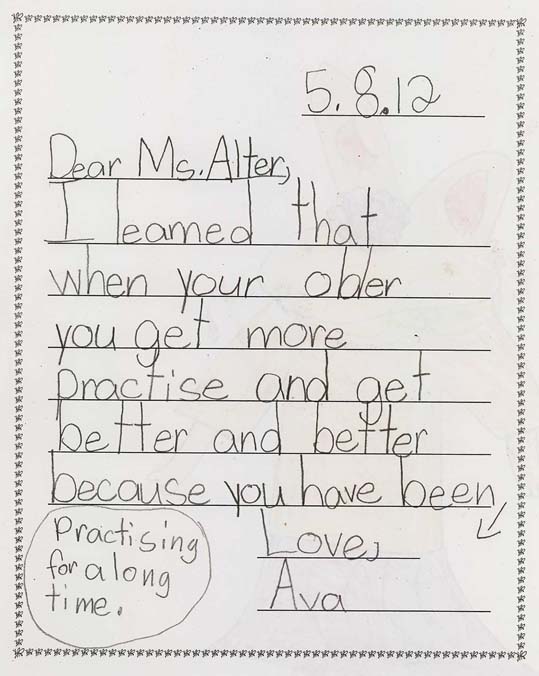 5.8.12
Dear Ms. Alter,
I learned that
when your older
you get more
practise and get
better and better
because you have been
Practising
for a long
time.
Love,
Ava